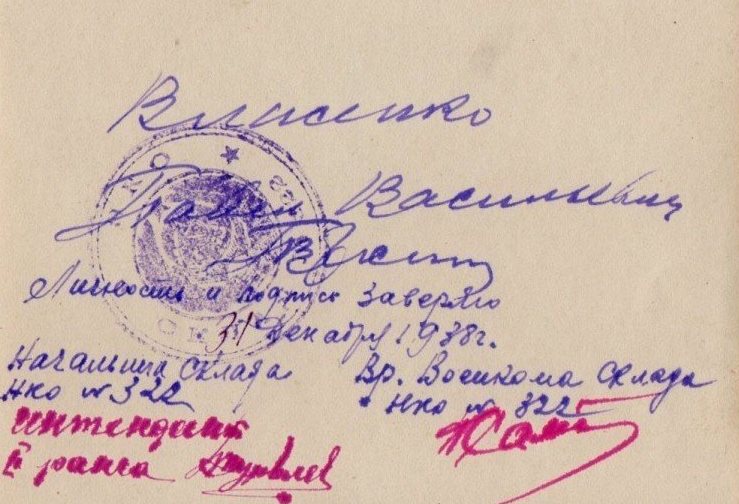 Власенко
Павел Васильевич
Личность и подпись заверяю
31 Декабря 1938г.
Начальник склада Вр. Военкома склада
НКО № 322 НКО № 322
интендант
II ранга Журавлев